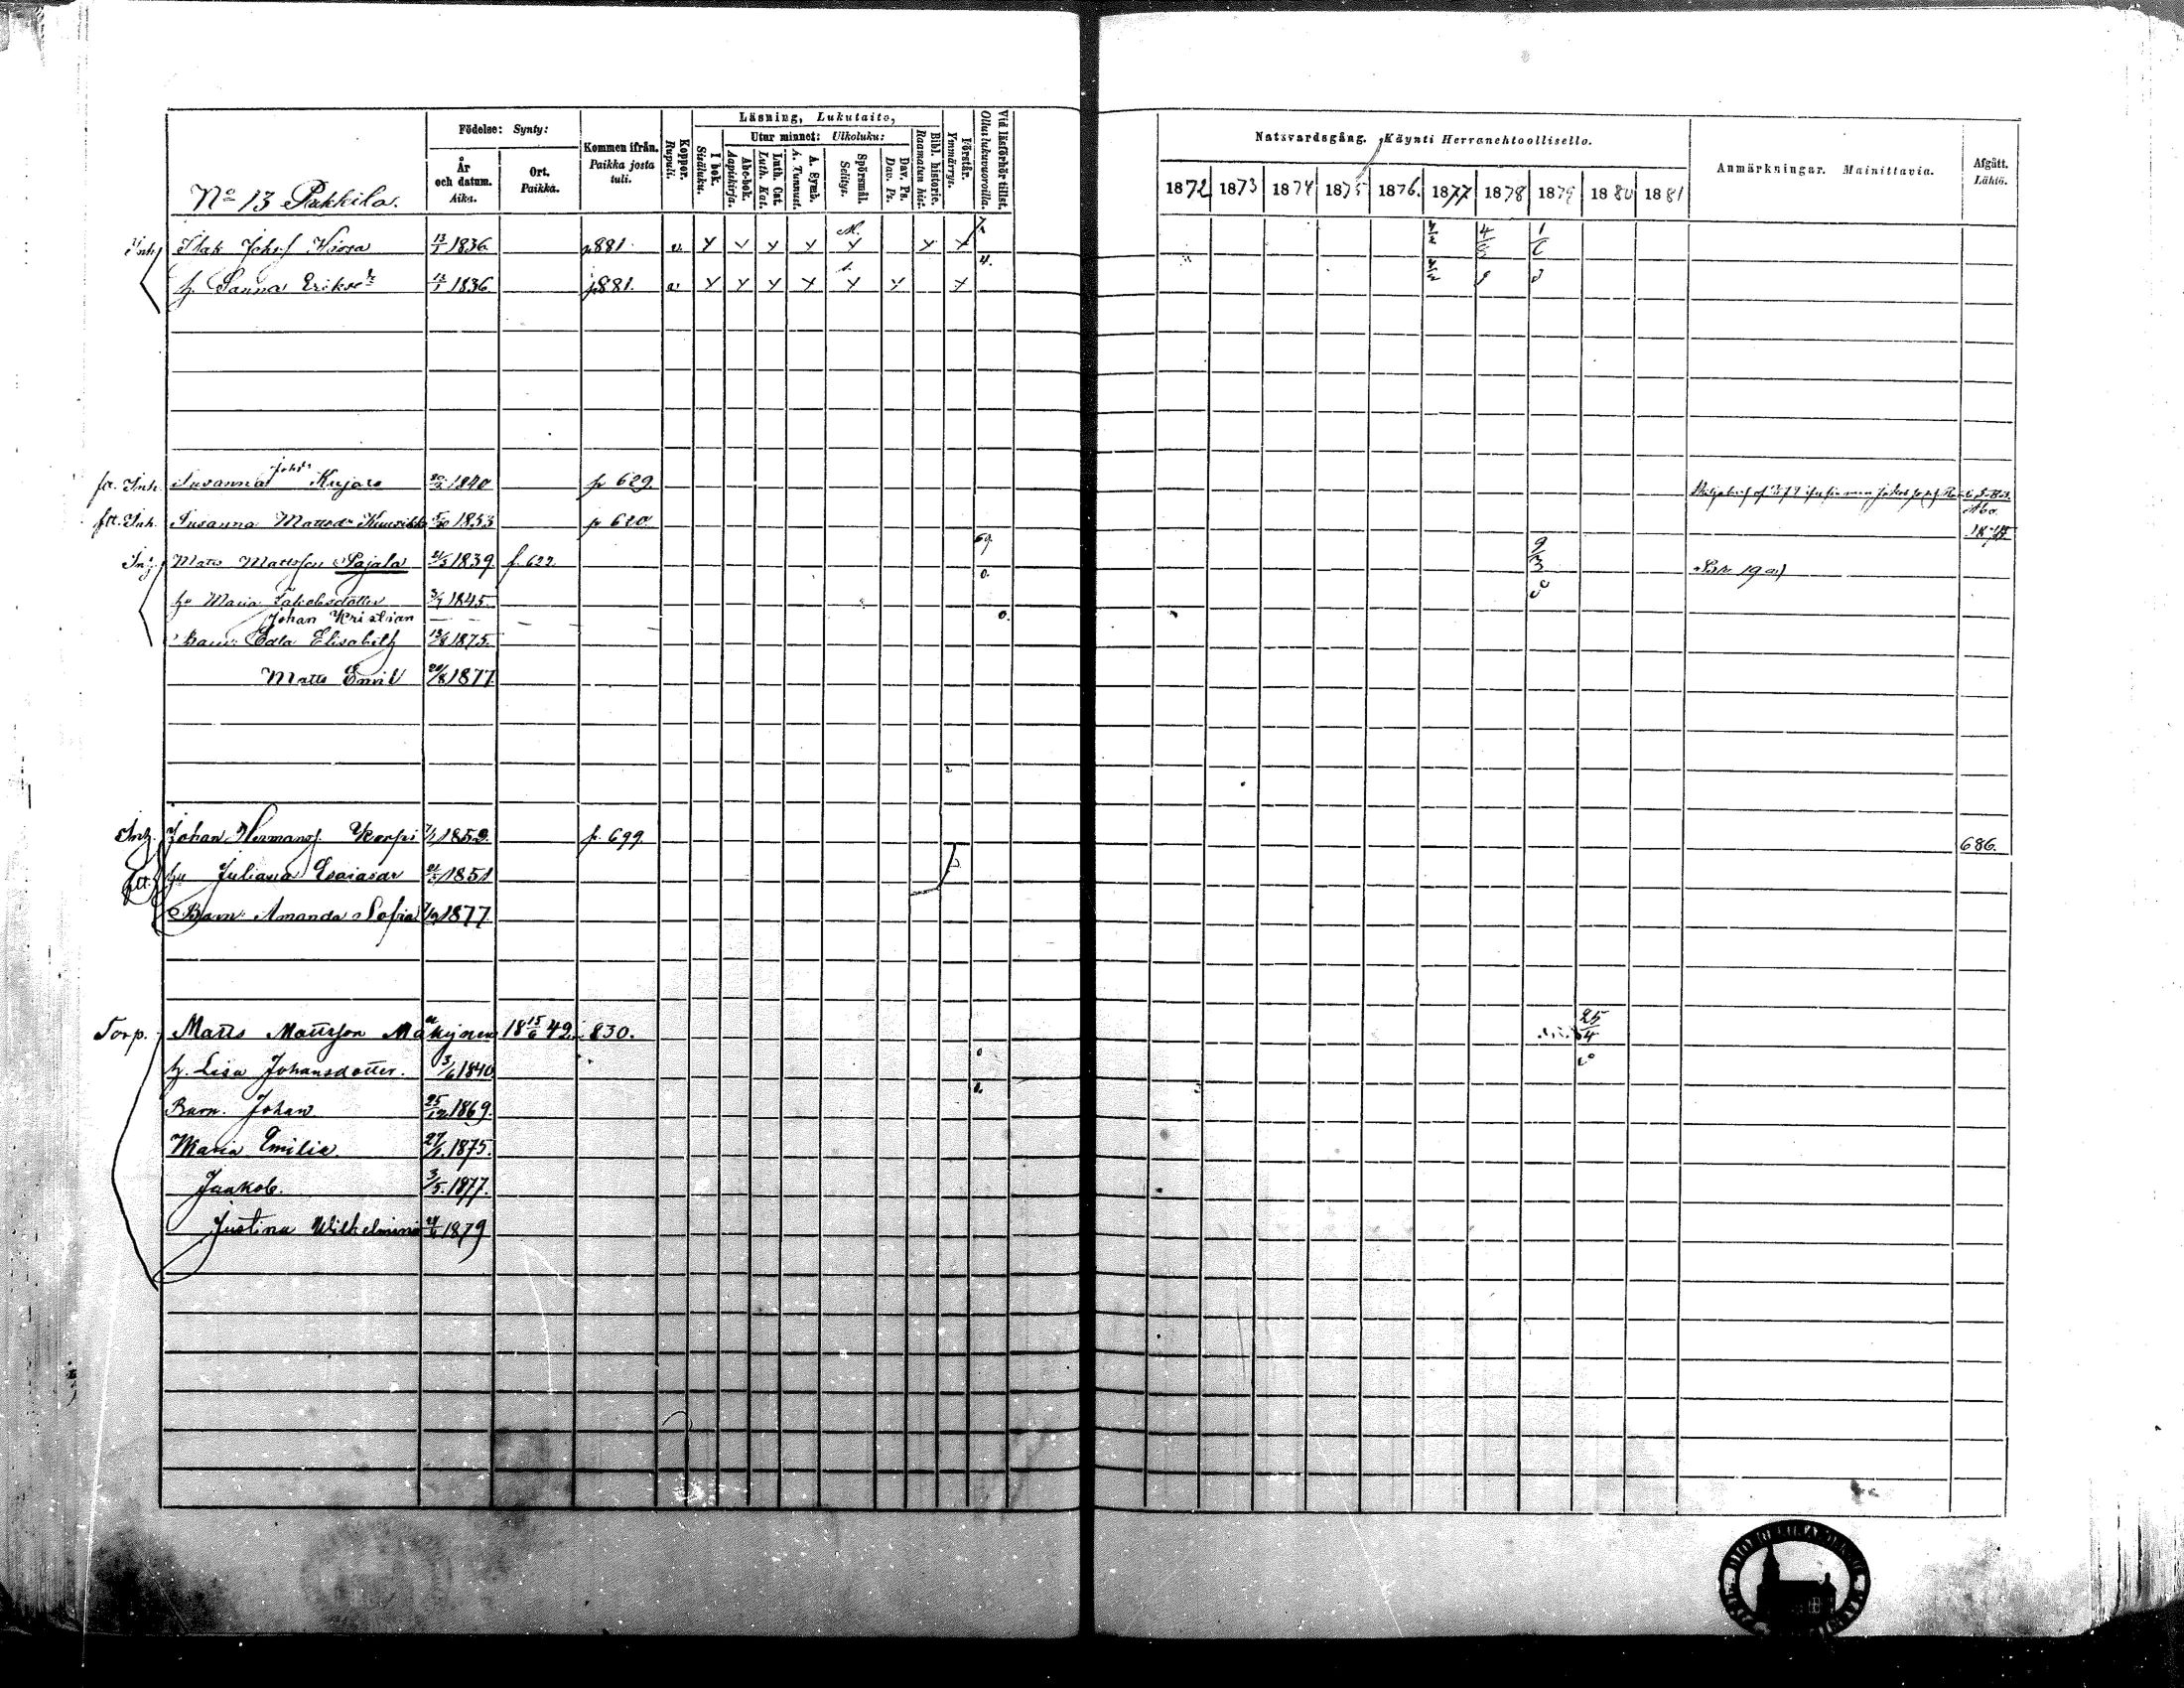 Födelse: Synty:
År och datum. Aika.
Ort. Paikka.
Kommen ifrån. Paikka josta tuli.
Koppor. Rupuli.
Läsning, Lukutaito,
I bok. Sisäluku.
Utur minnet: Ulkoluku:
Abc-bok. Aapiskirja.
Luth. Cat. Luth. Kat.
A. Symb. A. Tunnust.
Spörsmål. Selitys.
Dav. Ps. Dav. Ps.
Bibl. historie. Raamatun hist.
Förstår. Ymmärrys.
Vid läsförhör tillst. Ollut lukuvuoroilla.
Nattvardsgång. Käynti Herranehtoollisella.
1872 1873 1874 1875 1876. 1877 1878 1879 1880 1881
Anmärkningar. Mainittavia.
Afgått. Lähtö.
No 13 Pakkila.
Inh. 13/1 1836 p 881. 4/6 1/6
h. Sanna Eriksdr 1836 p 881.
Inh. Susanna Johsdr Kujare 1840 p 629.
Inh. Susanna Mattsdr 1853 p 620
Matts Mattsson Pajala 1839 f. 622 9/3
hu Maria Jakobsdotter 3/7 1845.
Johan Kristian
Barn: Edla Elisabeth 1875.
Matts Emil 1877.
Inh. Johan Hermansf. Korpi 1852. p. 699. 686.
hu Juliana Esaiasdr 1851
Barn: Amanda Sofia 1877
Torp. Matts Mattsson Mäkynen 18 15/6 42. 830. 25/4
h. Lisa Johansdotter. 3/6 1840
Barn. Johan 25/12 1869.
Maria Emilia. 27/1. 1875.
Jaakob. 3/5. 1877.
Justina Wilhelmina 1879